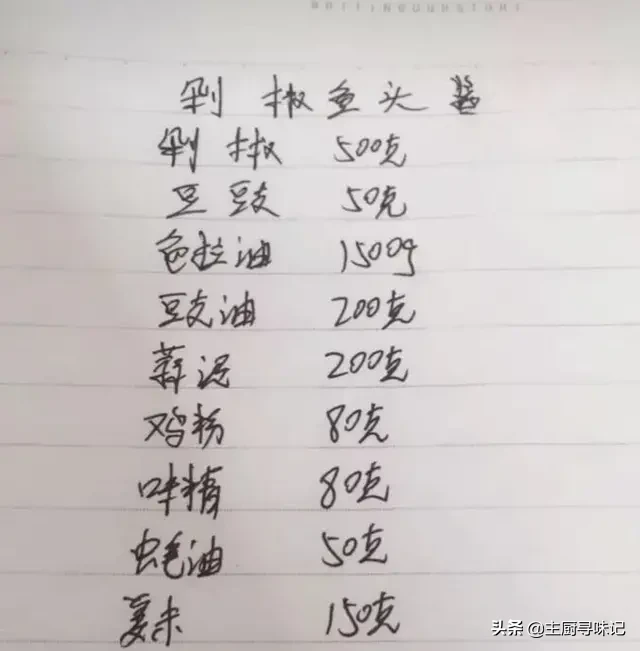 剁椒鱼头酱
剁椒 500克
豆豉 50克
色拉油 1500g
豉油 200克
蒜泥 200克
鸡粉 80克
味精 80克
蚝油 50克
姜末 150克
头条 @主厨寻味记